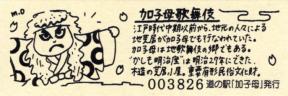 M.O
加子母歌舞伎
江戸時代中期以前から、地元の人々による
地芝居が加子母でも行なわれていた。
加子母は地歌舞伎の郷とである。
"かしも明治座"は明治27年にできた
木造の芝居小屋。重要有形民俗文化財。
003826 道の駅「加子母」発行